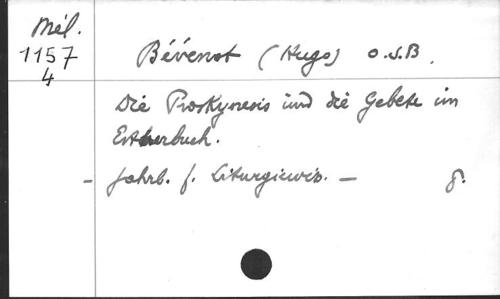 Mél.
1157
4
Bévenot (Hugo) O.S.B.
Die Proskynesis und die Gebete im
Estherbuch.
- Jahrb. f. Liturgiewis. - 8.